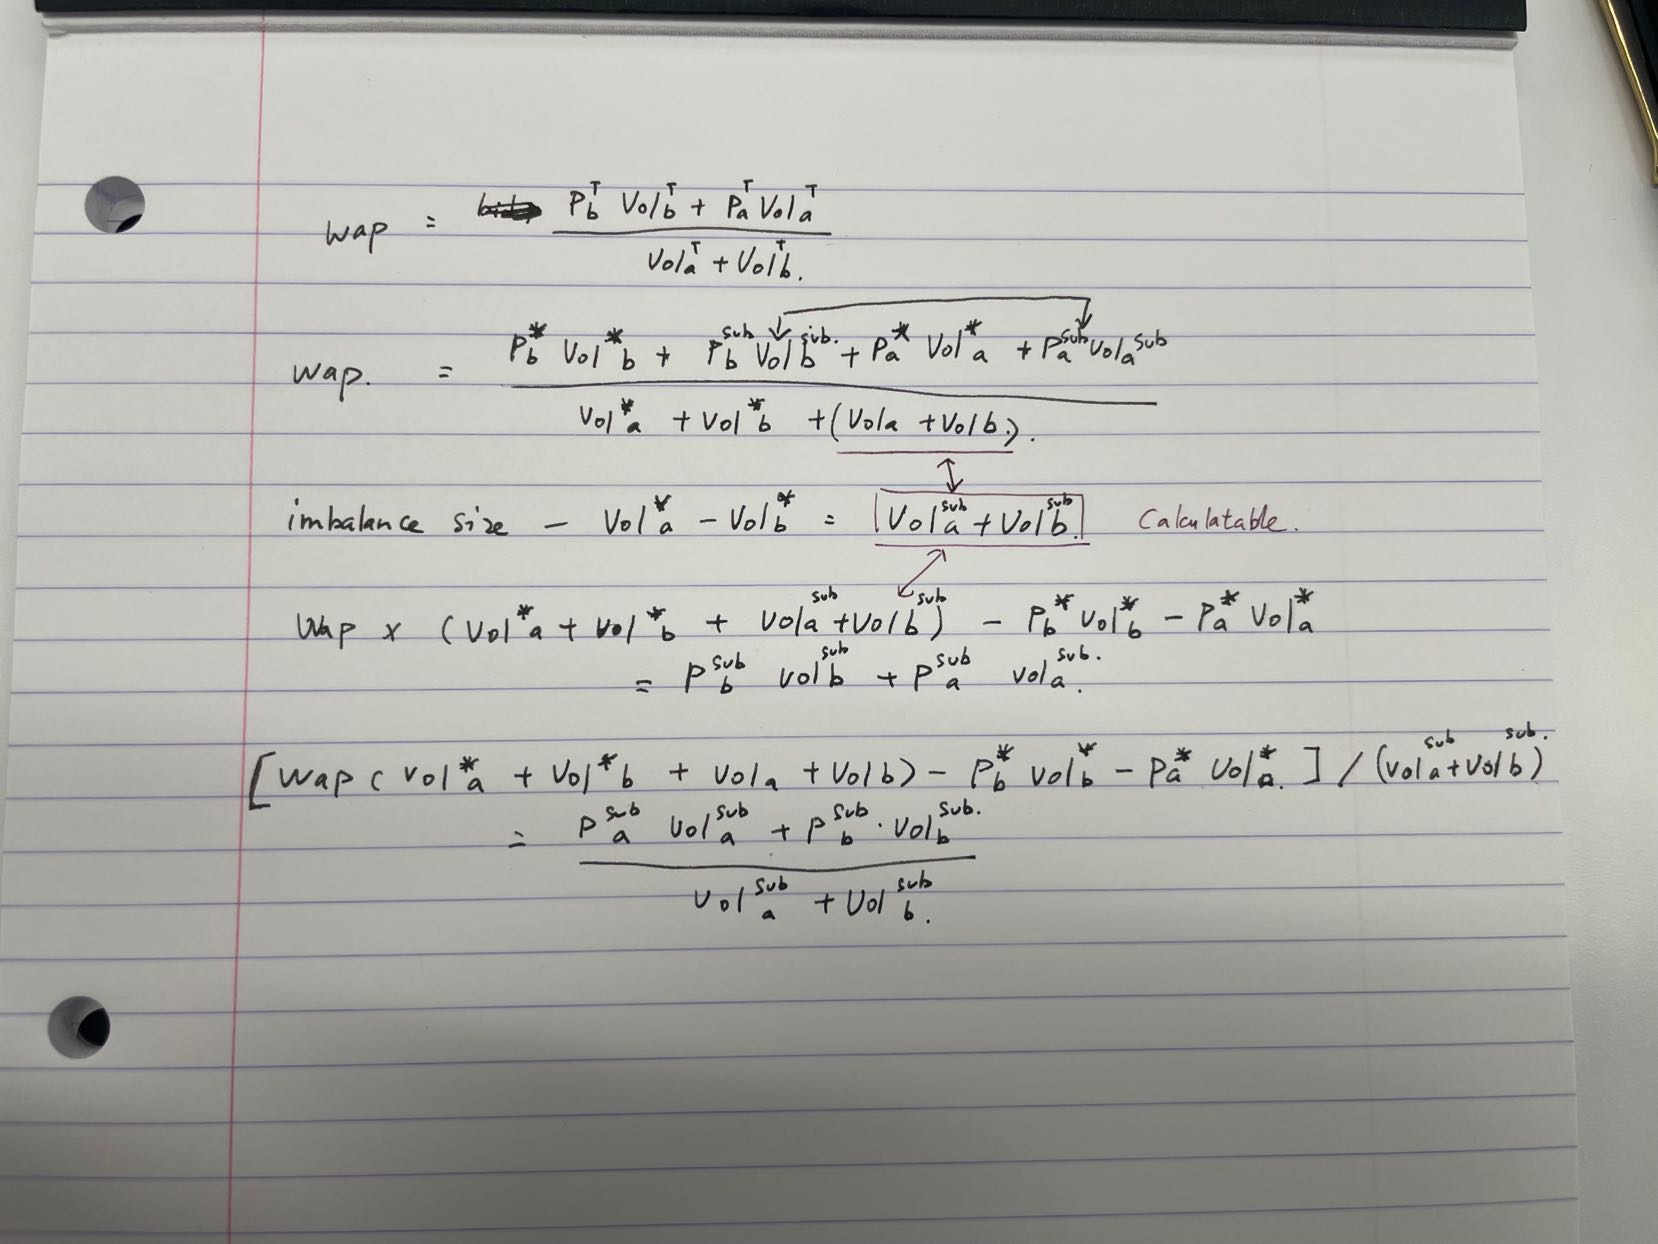 wap = P_b^T Vol_b^T + P_a^T Vol_a^T
Vol_a^T + Vol_b^T.
wap. = P_b^* Vol^*_b + P_b^sub Vol_b^sub. + P_a^* Vol^*_a + P_a^sub Vol_a^sub
Vol^*_a + Vol^*_b + (Vol_a + Vol_b).
imbalance size - Vol^*_a - Vol_b^* = Vol_a^sub + Vol_b^sub. Calculatable.
Wap x (Vol^*_a + Vol^*_b + Vol_a^sub + Vol_b^sub) - P_b^* Vol_b^* - P_a^* Vol_a^*
= P_b^sub Vol_b^sub + P_a^sub Vol_a^sub.
[Wap (Vol^*_a + Vol^*_b + Vol_a + Vol_b) - P_b^* Vol_b^* - P_a^* Vol_a^*.] / (Vol_a^sub + Vol_b^sub.)
= P_a^sub Vol_a^sub + P_b^sub · Vol_b^sub.
Vol_a^sub + Vol_b^sub.